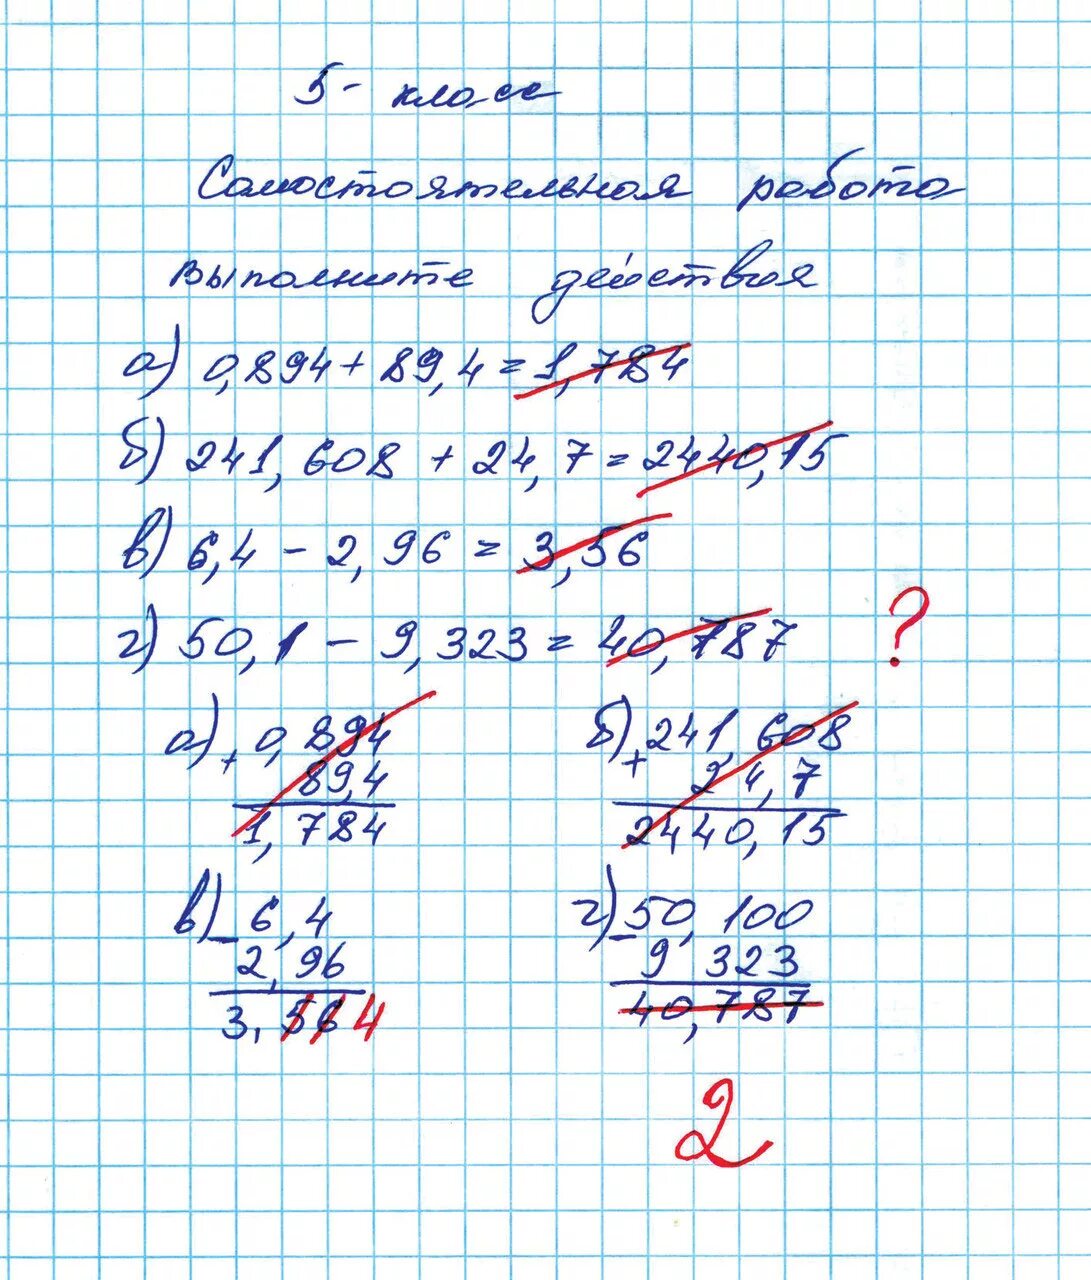 5 - класс
Самостоятельная работа
Выполните действия
а) 0,894 + 89,4 = 1,784
б) 241,608 + 24,7 = 2440,15
в) 6,4 - 2,96 = 3,56
г) 50,1 - 9,323 = 40,787 ?
а) + 0,894
89,4
1,784
б) + 241,608
24,7
2440,15
в) - 6,4
2,96
3,56 4
г) - 50,100
9 323
40,787
2